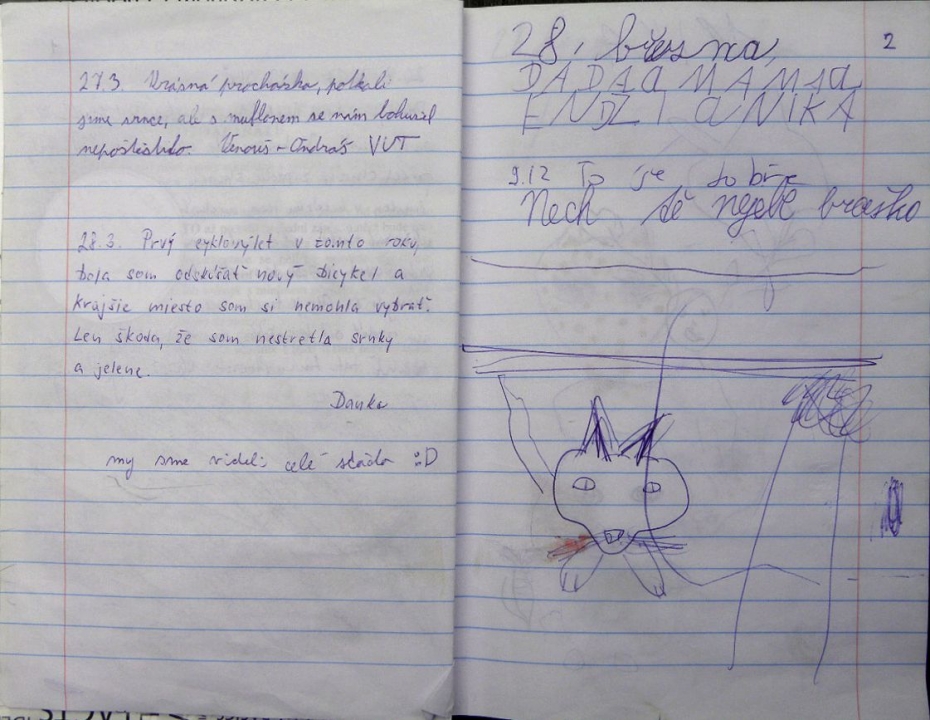 27.3. Krásná procháska, potkali
jsme srnce, ale s muflonem se nám bohužel
nepoštěstilo. Venouš - Ondráš VUT
28.3. Prvý cyklovýlet v tomto roku,
bola som odskúšať nový bicykel a
krajšie miesto som si nemohla vybrať.
Len škoda, že som nestretla srnky
a jelene.
Danka
my sme videli celé stádo :D
2
28. března,
DÁĎA MAMJA
ENDŽI NIKA
9.12 To je dobře
Nech tě